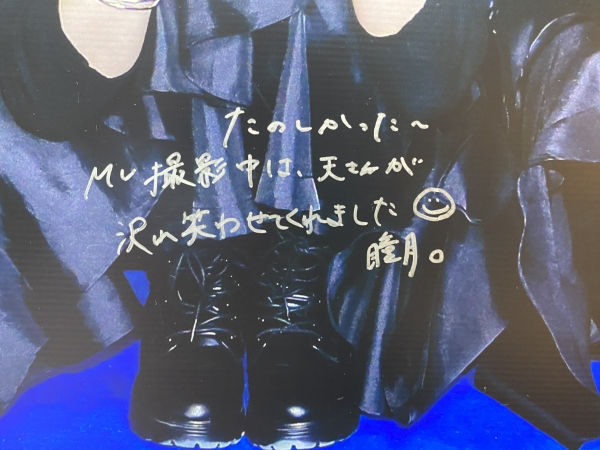 たのしかった〜
MV撮影中は、天さんが
沢山笑わせてくれました
瞳月。